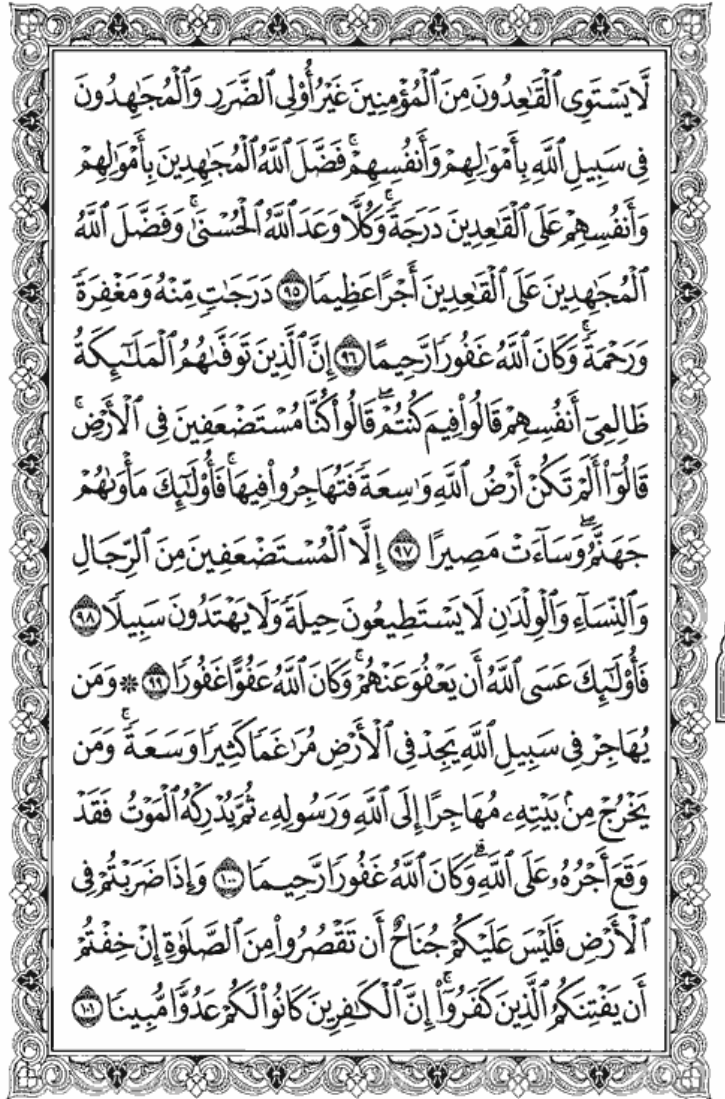 لَّا يَسْتَوِي ٱلْقَٰعِدُونَ مِنَ ٱلْمُؤْمِنِينَ غَيْرُ أُوْلِي ٱلضَّرَرِ وَٱلْمُجَٰهِدُونَ
فِي سَبِيلِ ٱللَّهِ بِأَمْوَٰلِهِمْ وَأَنفُسِهِمْۚ فَضَّلَ ٱللَّهُ ٱلْمُجَٰهِدِينَ بِأَمْوَٰلِهِمْ
وَأَنفُسِهِمْ عَلَى ٱلْقَٰعِدِينَ دَرَجَةٗۚ وَكُلّٗا وَعَدَ ٱللَّهُ ٱلْحُسْنَىٰۚ وَفَضَّلَ ٱللَّهُ
ٱلْمُجَٰهِدِينَ عَلَى ٱلْقَٰعِدِينَ أَجْرًا عَظِيمٗا ٩٥ دَرَجَٰتٖ مِّنْهُ وَمَغْفِرَةٗ
وَرَحْمَةٗۚ وَكَانَ ٱللَّهُ غَفُورٗا رَّحِيمًا ٩٦ إِنَّ ٱلَّذِينَ تَوَفَّىٰهُمُ ٱلْمَلَٰٓئِكَةُ
ظَالِمِيٓ أَنفُسِهِمْ قَالُواْ فِيمَ كُنتُمْۖ قَالُواْ كُنَّا مُسْتَضْعَفِينَ فِي ٱلْأَرْضِۚ
قَالُوٓاْ أَلَمْ تَكُنْ أَرْضُ ٱللَّهِ وَٰسِعَةٗ فَتُهَاجِرُواْ فِيهَاۚ فَأُوْلَٰٓئِكَ مَأْوَىٰهُمْ
جَهَنَّمُۖ وَسَآءَتْ مَصِيرًا ٩٧ إِلَّا ٱلْمُسْتَضْعَفِينَ مِنَ ٱلرِّجَالِ
وَٱلنِّسَآءِ وَٱلْوِلْدَٰنِ لَا يَسْتَطِيعُونَ حِيلَةٗ وَلَا يَهْتَدُونَ سَبِيلٗا ٩٨
فَأُوْلَٰٓئِكَ عَسَى ٱللَّهُ أَن يَعْفُوَ عَنْهُمْۚ وَكَانَ ٱللَّهُ عَفُوًّا غَفُورٗا ٩٩ ۞ وَمَن
يُهَاجِرْ فِي سَبِيلِ ٱللَّهِ يَجِدْ فِي ٱلْأَرْضِ مُرَٰغَمٗا كَثِيرٗا وَسَعَةٗۚ وَمَن
يَخْرُجْ مِنۢ بَيْتِهِۦ مُهَاجِرًا إِلَى ٱللَّهِ وَرَسُولِهِۦ ثُمَّ يُدْرِكْهُ ٱلْمَوْتُ فَقَدْ
وَقَعَ أَجْرُهُۥ عَلَى ٱللَّهِۗ وَكَانَ ٱللَّهُ غَفُورٗا رَّحِيمٗا ١٠٠ وَإِذَا ضَرَبْتُمْ فِي
ٱلْأَرْضِ فَلَيْسَ عَلَيْكُمْ جُنَاحٌ أَن تَقْصُرُواْ مِنَ ٱلصَّلَوٰةِ إِنْ خِفْتُمْ
أَن يَفْتِنَكُمُ ٱلَّذِينَ كَفَرُوٓاْۚ إِنَّ ٱلْكَٰفِرِينَ كَانُواْ لَكُمْ عَدُوّٗا مُّبِينٗا ١٠١